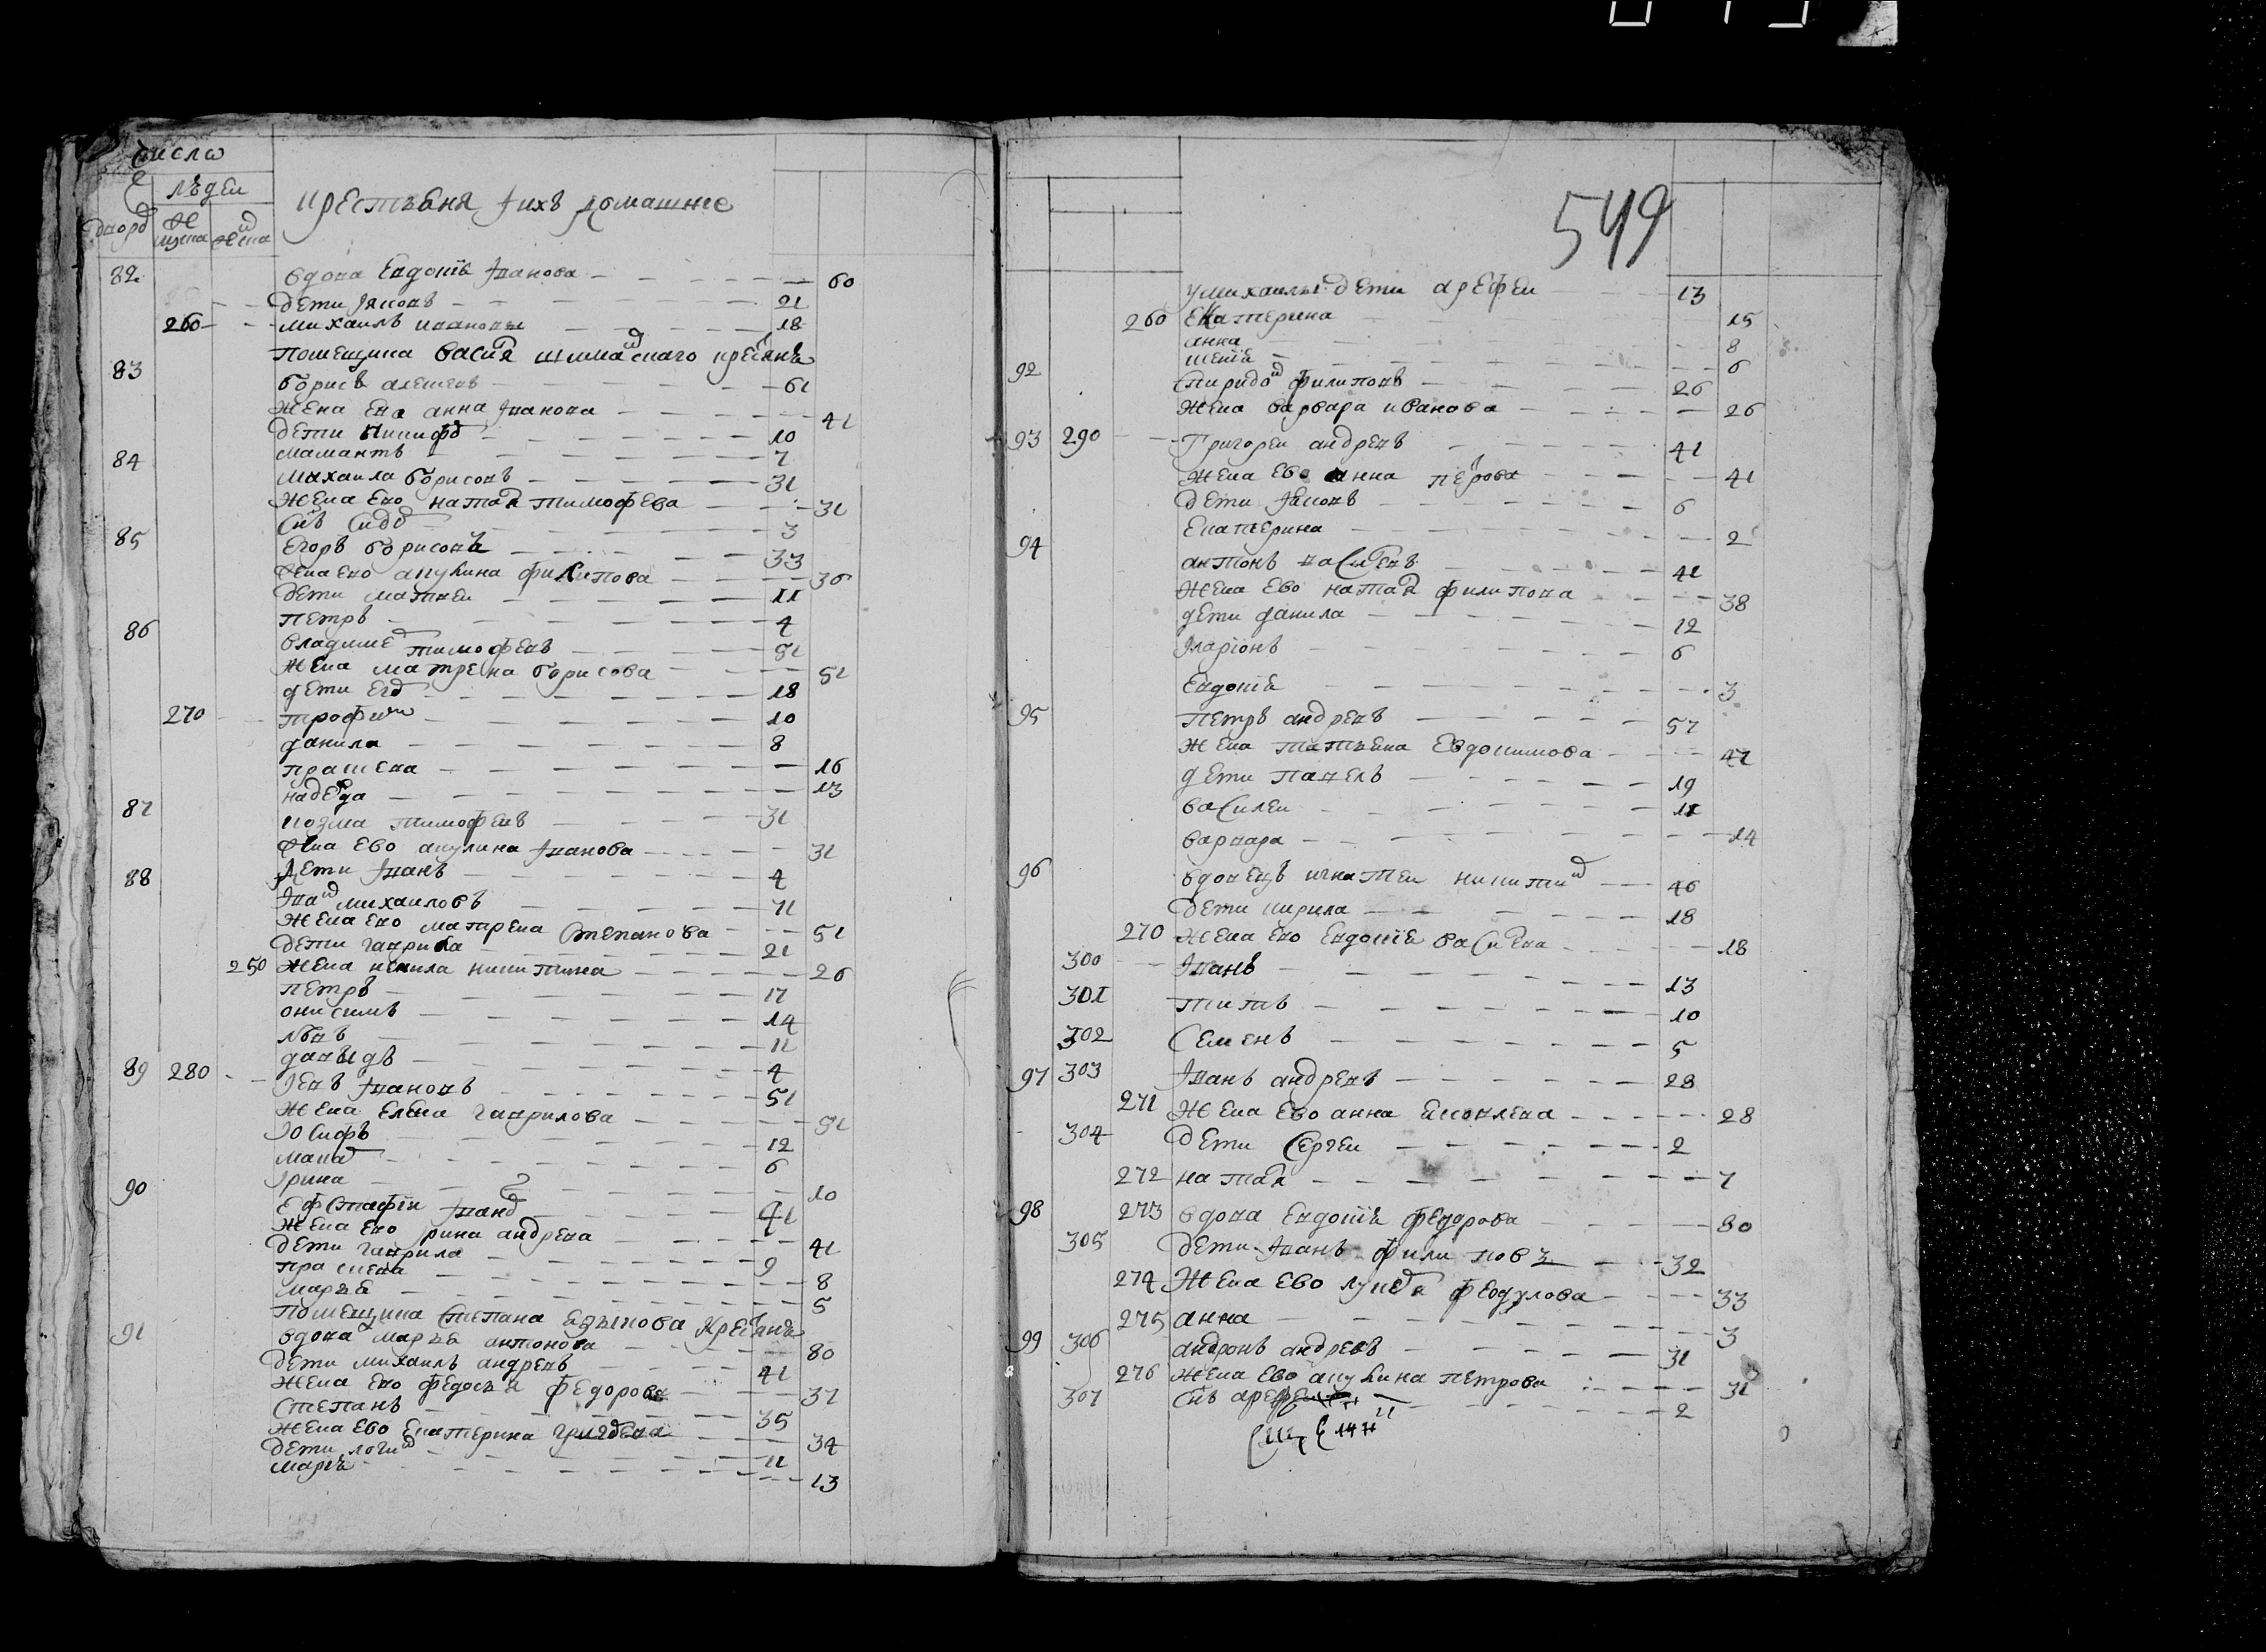 число
людеи
дворъ мужска женска
крестьяня и ихъ домашние
82 вдова Евдокия Iванова 60
дети Яковъ 21
260 михаилъ ивановы 18
помещика василя кресянъ
83 борисъ алексевъ 61
жена ево анна Iванова 41
дети Никифоръ 10
мамантъ 7
84 михаила борисовъ 31
жена ево наталя тимофева 31
снъ Сидоръ 3
85 Егоръ борисовъ 33
жена ево акулина филипова 36
дети матвеи 11
петръ 4
86 владимеръ тимофеевъ 51
жена матрена борисова 51
дети Егоръ 18
270 трофимъ 10
данила 8
прасковя 16
надежда 13
87 козма тимофеевъ 31
жена Ево акулина Iванова 31
дети Iванъ 4
88 Iванъ михаиловъ 71
жена ево матрена Степанова 51
дети гаврила 21
250 жена никитина 26
петръ 17
онисимъ 14
львъ 11
давыдъ 4
89 280 Iевъ Iвановъ 51
жена Елена гаврилова 51
Iосифъ 12
макаръ 6
Iрина 10
90 Ефстафiи Iвановъ 41
жена ево Iрина андрева 41
дети гаврила 9
прасковя 8
маръя 5
помещика Степана Языкова кресянъ
91 вдова маръя антонова 80
дети михаилъ андревъ 41
жена ево федосъя федорова 31
Степанъ 35
жена ево Екатерина григорева 34
дети логинъ 11
маръя 13
549
у михаилы дети арефеи 13
260 Екатерина 15
анна 8
6
92 Спиридонъ филиповъ 26
жена варвара иванова 26
93 290 Григореи андревъ 41
жена Ево анна петрова 41
дети Яковъ 6
Екатерина 2
94 антонъ василевъ 41
жена Ево наталя филипова 38
дети данила 12
Iларiонъ 6
Евдокiя 3
95 петръ андревъ 57
жена татьяна Евдокимова 47
дети павелъ 19
василеи 11
варвара 14
96 вдовецъ игнатеи никитинъ 46
дети кирила 18
270 жена ево Евдокiя василева 18
300 Iванъ 13
301 титъ 10
302 Семенъ 5
97 303 Iванъ андревъ 28
271 жена Ево анна Яковлева 28
304 дети Сергеи 2
272 наталя 7
98 273 вдова Евдокiя федорова 80
305 дети Iванъ филиповъ 32
274 жена Ево лукеря федулова 33
275 анна 3
99 306 андронъ андревъ 31
276 жена Ево акулина петрова 31
307 снъ арефеи 2